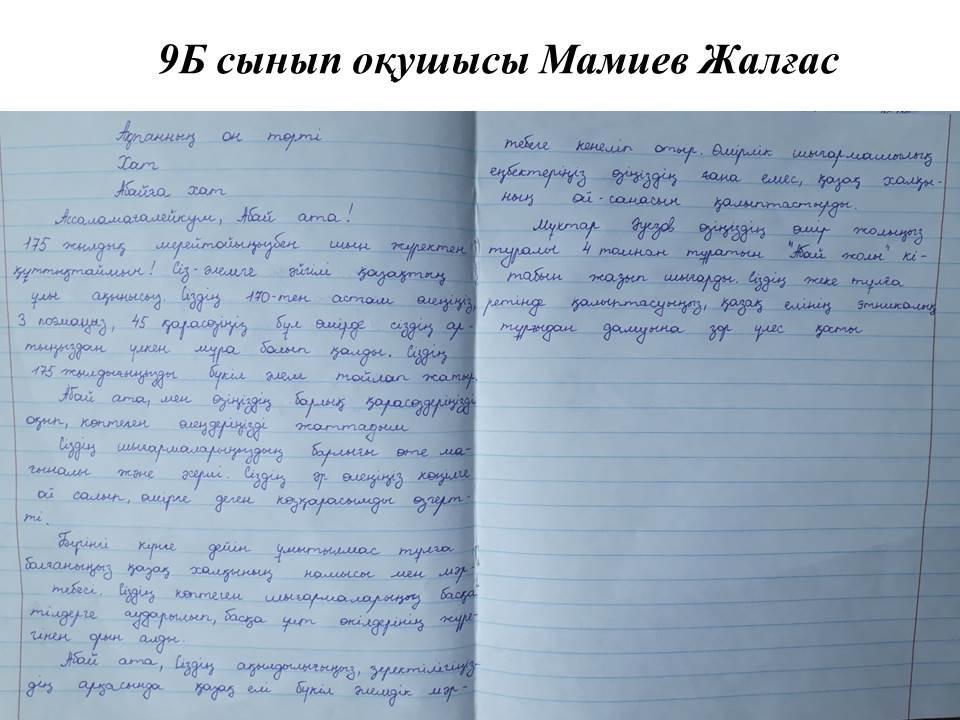 9Б сынып оқушысы Мамиев Жалғас
Ақпанның он төрті
Хат
Абайға хат
Ассаламағалейкум, Абай ата!
175 жылдық мерейтойыңызбен шын жүректен
құттықтаймын! Сіз-әлемге әйгілі қазақтың
ұлы ақынысың. Сіздің 170-тен астам өлеңіңіз,
3 поэмаңыз, 45 қарасөзіңіз бұл өмірде сіздің ар-
тыңыздан үлкен мұра болып қалды. Сіздің
175 жылдығыңызды бүкіл әлем тойлап жатыр.
Абай ата, мен өзіңіздің барлық қарасөздеріңізді
оқып, көптеген өлеңдеріңізді жаттадым
Сіздің шығармаларыңыздың барлығы өте ма-
ғыналы және әсерлі. Сіздің әр өлеңіңіз көңілге
ой салып, өмірге деген көзқарасымды өзгерт-
ті.
Бүгінгі күнге дейін ұмытылмас тұлға
болғаныңыз қазақ халқының намысы мен мәр-
тебесі. Сіздің көптеген шығармаларыңыз басқа
тілдерге аударылып, басқа ұлт өкілдерінің жүре-
гінен орын алды.
Абай ата, Сіздің ақылдылығыңыз, зеректілігіңіз-
дің арқасында қазақ елі бүкіл әлемдік мәр-
тебеге кенеліп отыр. Өмірлік шығармашылық
еңбектеріңіз өзіңіздің ғана емес, қазақ халқы-
ның ой-санасын қалыптастырды.
Мұхтар Әуезов өзіңіздің өмір жолыңыз
туралы 4 томнан тұратын "Абай жолы" кі-
табын жазып шығарды. Сіздің жеке тұлға
ретінде қалыптасуыңыз, қазақ елінің этникалық
тұрғыдан дамуына зор үлес қосты